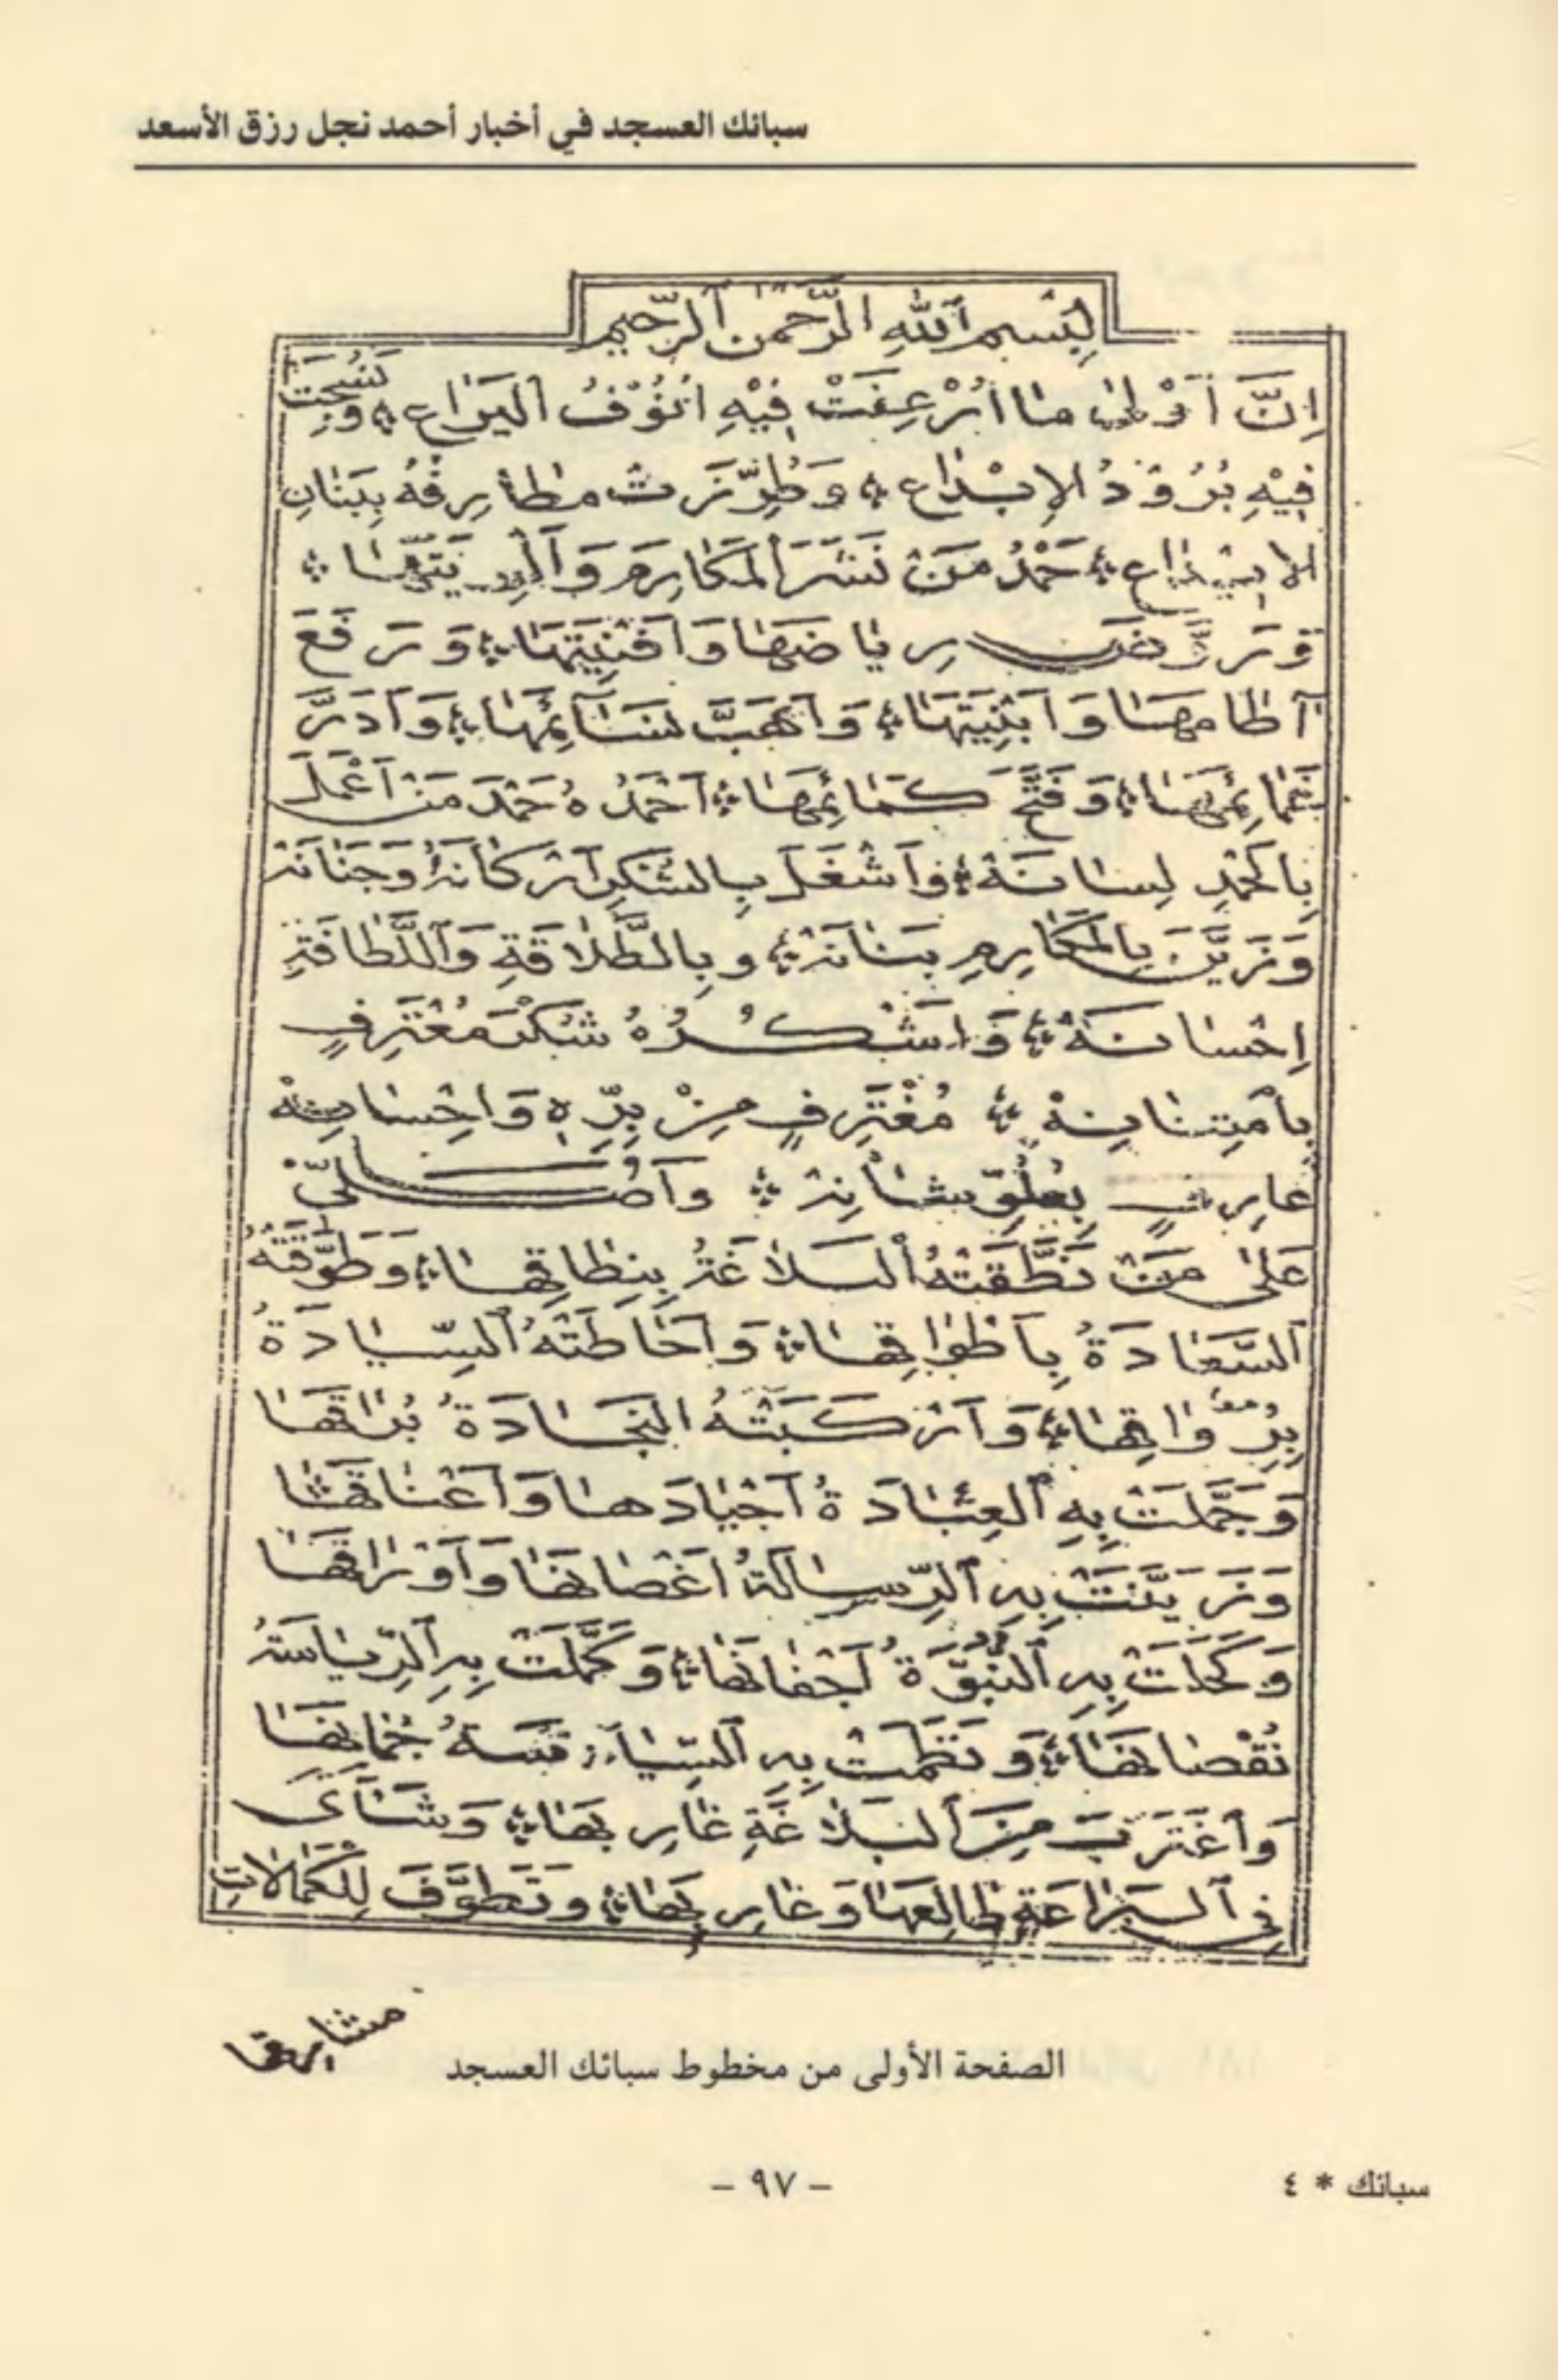 سبائك العسجد في أخبار أحمد نجل رزق الأسعد
بِسْمِ ٱللهِ الرَّحْمٰنِ ٱلرَّحِيمِ
اِنَّ اَوْلىٰ مٰا اُرْعِفَتْ فِيْهِ اُنُوْفُ ٱليَرٰاعِ ؞ وَنُسِجَتْ
فِيْهِ بُرُوْدُ الاِبْدٰاعِ ؞ وَطُرِّزَتْ مطارِفُهُ بِبَنٰانِ
الابتِدٰاعِ ؞ حَمْدُ مَنْ نَشَرَ ٱلمَكٰارِمَ وَ ؞
وَرَوَّضَ رِيٰاضَهٰا وَاَفْنِيَتَهٰا ؞ وَرَفَعَ
آطٰامهٰا وَاَبْنِيَتَهٰا ؞ وَاَهَبَّ نَسٰآئِمَهٰا ؞ وَاَدَرَّ
غَمٰائِمَهٰا ؞ وَفَتَّحَ كَمٰائِمَهٰا ؞ اَحْمَدُهُ حَمْدَ مَنْ اَعْمَلَ
بِالحَمْدِ لِسٰانَهْ ؞ وَاَشْغَلَ بِالشُّكْرِ اَرْكٰانَهُ وَجَنٰانَهْ
وَزَيَّنَ بِالمَكٰارِمِ بَنٰانَهْ ؞ وبِالطَّلٰاقَةِ وَٱللَّطٰافَةِ
اِحْسٰانَهْ ؞ وَاَشْكُرُهُ شُكْرَ مُعْتَرِفٍ
بِٱمْتِنٰانِهْ ؞ مُغْتَرِفٍ مِنْ بِرِّهِ وَاِحْسٰانِهْ
عٰارِفٍ بِعُلُوِّ شٰأْنِهْ ؞ وَاُصَلِّيْ
عَلىٰ مَنْ نَطَّقَتْهُ ٱلبَلاٰغَةُ بِنِطٰاقِهٰا ؞ وَطَوَّقَتْهُ
ٱلسَّعٰادَةُ بِاَطْوٰاقِهٰا ؞ وَاَحٰاطَتْهُ ٱلسِّيٰادَةُ
بِرُوٰاقِهٰا ؞ وَاَرْكَبَتْهُ النَّجٰادَةُ بُرٰاقَهٰا
وَجَمَّلَتْ بِهِ ٱلعِبٰادَةُ اَجْيٰادَهٰا وَاَعْنٰاقَهٰا
وَزَيَّنَتْ بِهِ ٱلرِّسٰالَةُ اَغْصٰانَهٰا وَاَوْرٰاقَهٰا
وَكَحَلَتْ بِهِ ٱلنُّبُوَّةُ اَجْفٰانَهٰا ؞ وَكَمَّلَتْ بِهِ ٱلرِّيٰاسَةُ
نُقْصٰانَهٰا ؞ وَنَظَمَتْ بِهِ جُمٰانَهٰا
وَٱغْتَرَبَ مِنَ ٱلبَلاٰغَةِ غٰارِبَهٰا ؞ وَشَآىٰ
فِي ٱلبَرٰاعَةِ طٰالِعَهٰا وَغٰارِبَهٰا ؞ وتَطَوَّفَ لِلْكَمٰالاٰتِ
مشارق
الصفحة الأولى من مخطوط سبائك العسجد
سبائك * ٤
– ٩٧ –